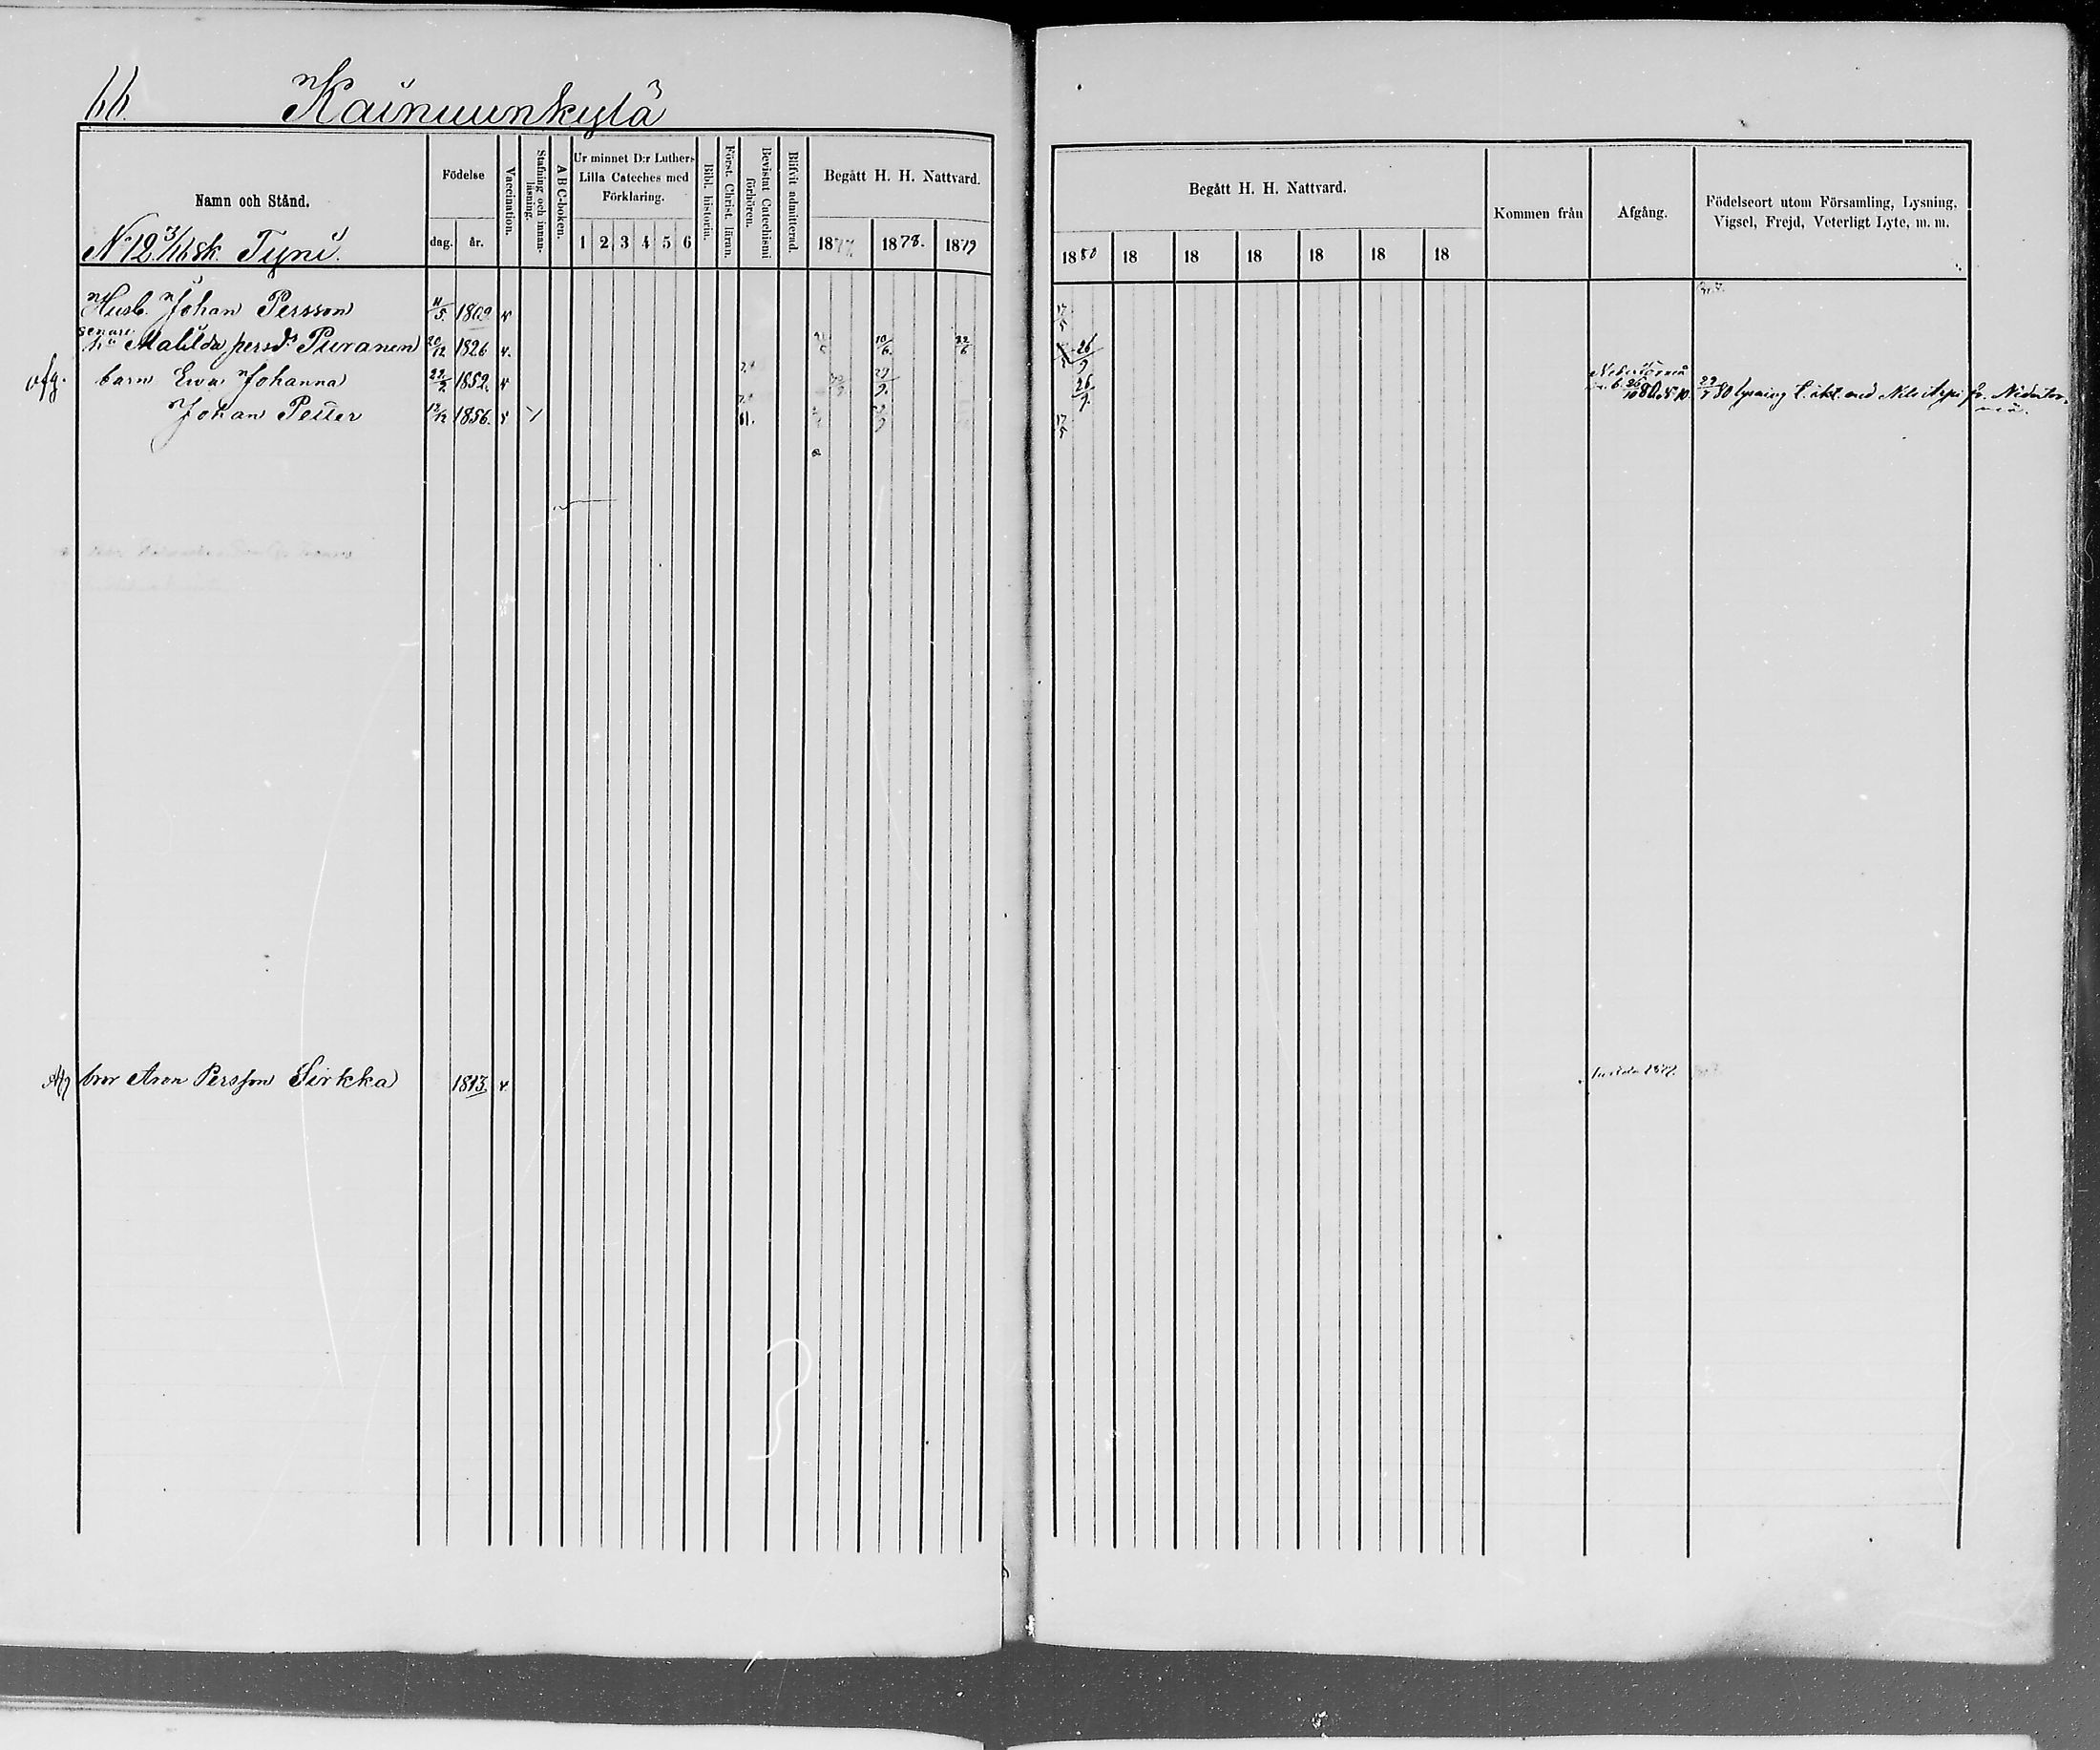 66.
Kainuunkylä
Namn och Stånd.
Födelse
dag. år.
Vaccination.
Stafning och innanläsning.
ABC-boken.
Ur minnet D:r Luthers Lilla Cateches med Förklaring.
1 2 3 4 5 6
Bibl. historia.
Först. Christ. läran.
Bevistat Catechismi förhören.
Blifvit admitterad.
Begått H. H. Nattvard.
1877 1878. 1879
Begått H. H. Nattvard.
1880 18 18 18 18 18 18
Kommen från
Afgång.
Födelseort utom Församling, Lysning, Vigsel, Frejd, Veterligt Lyte, m. m.
N 12 3/16 sk. Tyni.
Husb. Johan Persson 11/5 1809 v 17/5
senare
hu Matilda persd. Puranen 20/12 1826 v. 10/6. 22/6 26/9
afg. barn Eva Johanna 22/2 1852. v 29/9. 26/9. Nedertorneå 26/10 80 N 10. 29/7 80 lysning t. äkt. med Nils fr. Nedertorneå.
Johan Petter 12/12 1856. 17/5
bror Aron Persson Sirkka 1813. v. 1877.